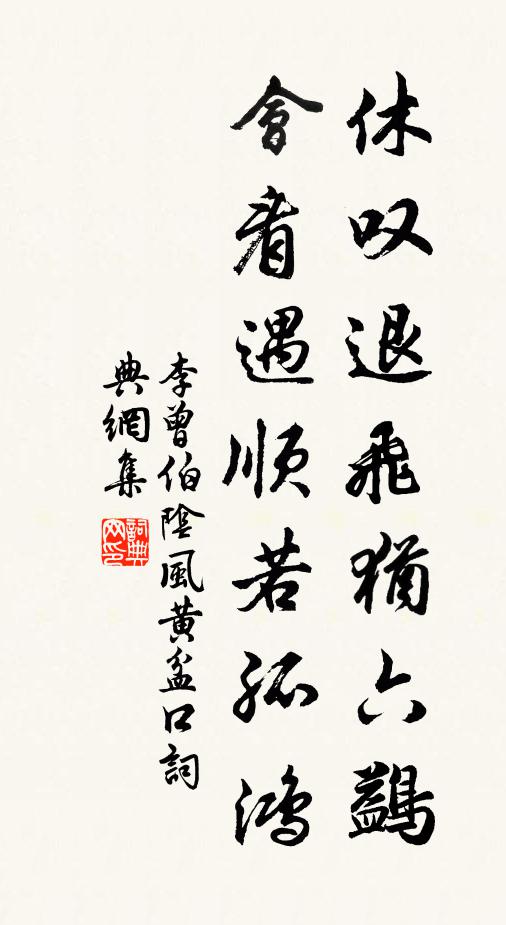 休叹退飛猶六鷁
會看遇順若孤鴻
李曾伯陰風黃盆口詞
典網集
詞典網印